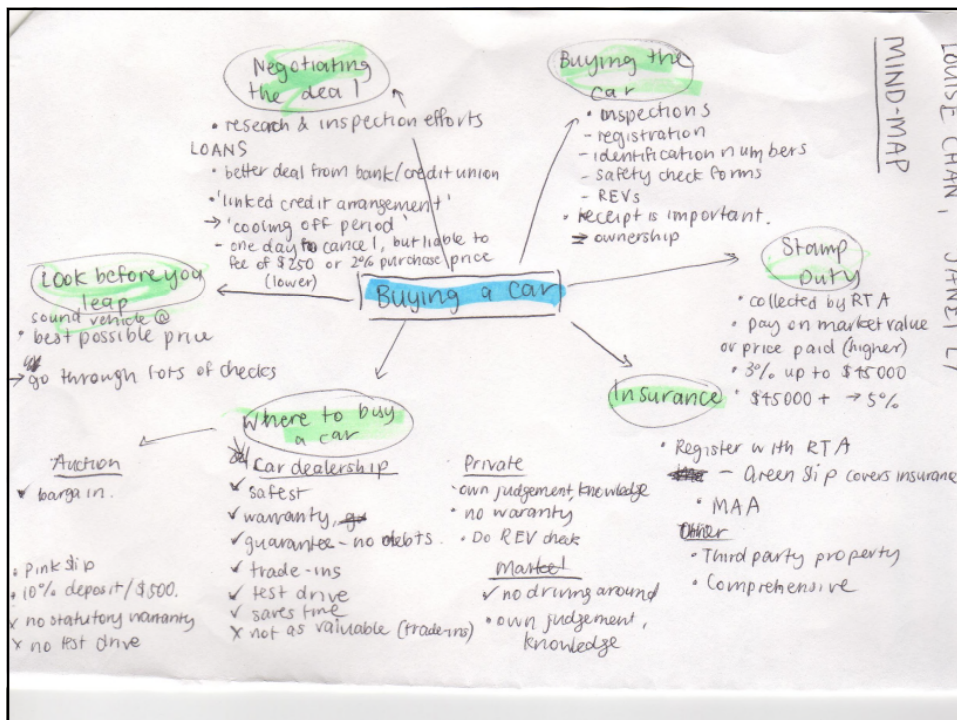 LOUISE CHAN, JANET L
MIND-MAP
Negotiating
the deal
• research & inspection efforts
LOANS
• better deal from bank/credit union
• 'linked credit arrangement'
→ 'cooling off period'
- one day to cancel, but liable to
fee of $250 or 2% purchase price
(lower)
Buying the
car
• inspections
- registration
- identification numbers
- safety check forms
- REVs
• receipt is important.
→ ownership
Stamp
Duty
• collected by RTA
• pay on market value
or price paid (higher)
• 3% up to $45000
• $45000 + → 5%
Buying a car
Look before you
leap
sound vehicle @
• best possible price
→ go through lots of checks
Insurance
• Register with RTA
- Green Slip covers insurance
• MAA
Other
• Third party property
• Comprehensive
Where to buy
a car
Auction
✓ bargain.
• Pink slip
• 10% deposit/$500.
✓ no statutory warranty
x no test drive
Car dealership
✓ safest
✓ warranty,
✓ guarantee - no debts.
✓ trade-ins
✓ test drive
✓ saves time
x not as valuable (trade-ins)
Private
• own judgement, knowledge
• no waranty
• Do REV check
Market
✓ no driving around
• own judgement,
knowledge